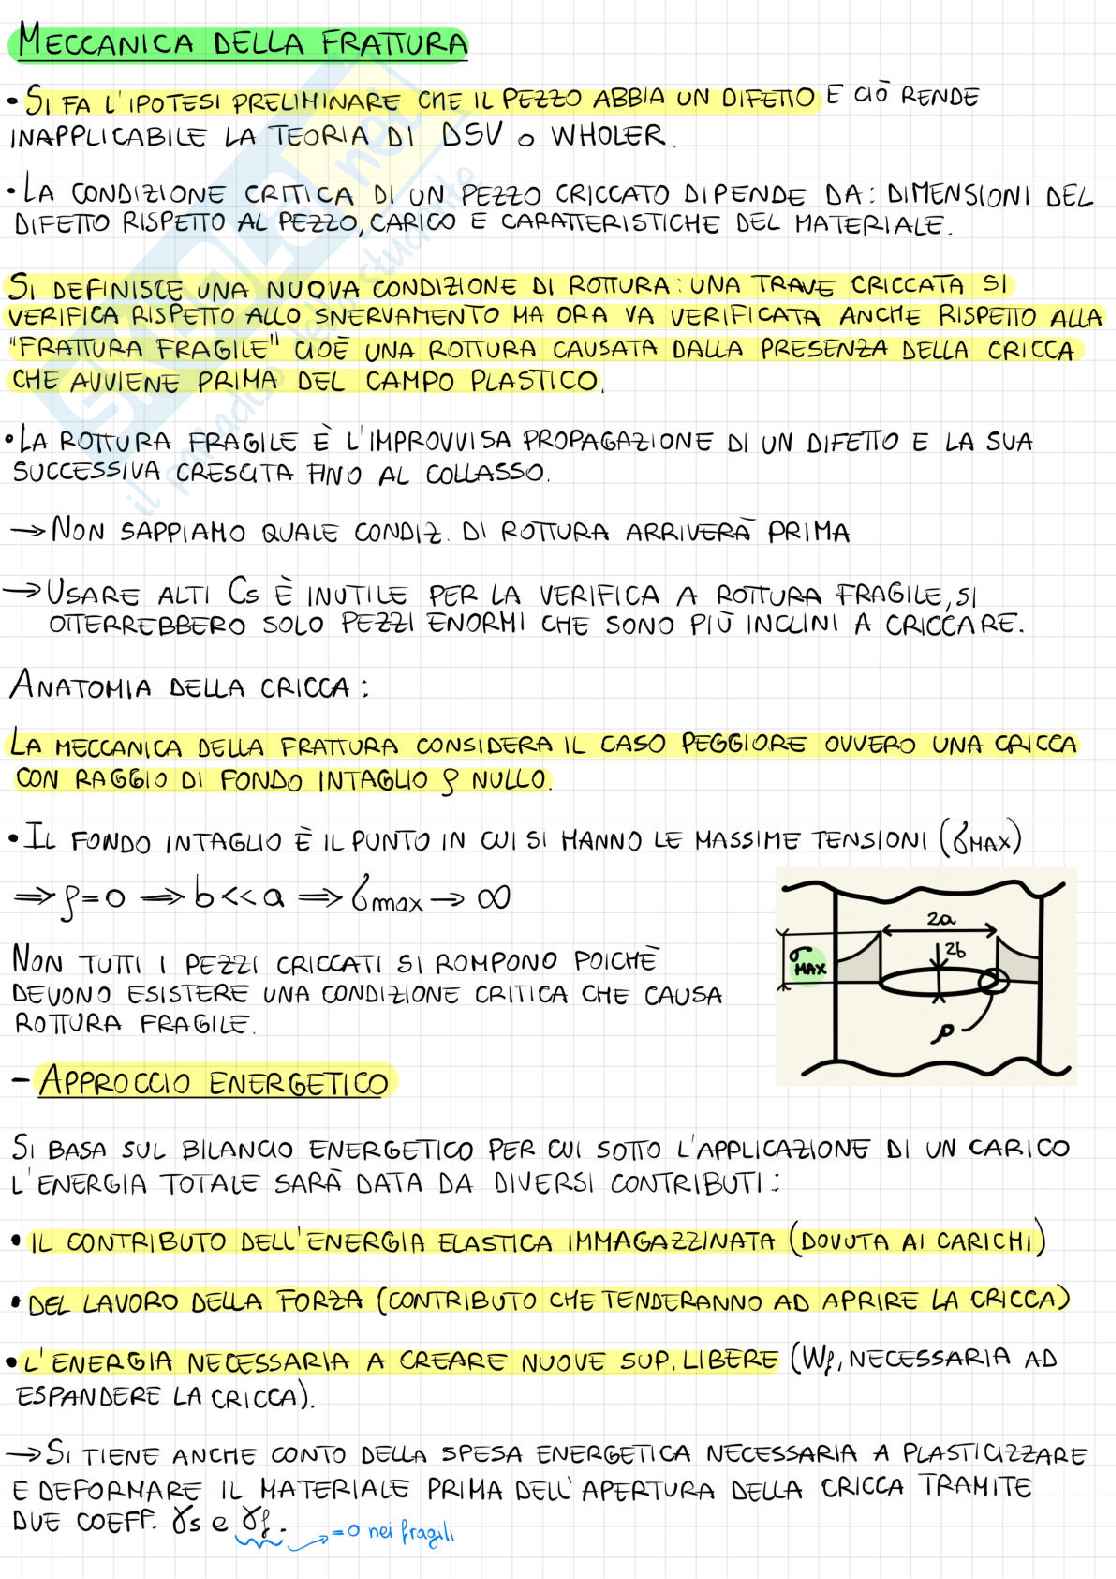 MECCANICA DELLA FRATTURA
• SI FA L'IPOTESI PRELIMINARE CHE IL PEZZO ABBIA UN DIFETTO E CIÒ RENDE
INAPPLICABILE LA TEORIA DI DSV O WHOLER.
• LA CONDIZIONE CRITICA DI UN PEZZO CRICCATO DIPENDE DA: DIMENSIONI DEL
DIFETTO RISPETTO AL PEZZO, CARICO E CARATTERISTICHE DEL MATERIALE.
SI DEFINISCE UNA NUOVA CONDIZIONE DI ROTTURA: UNA TRAVE CRICCATA SI
VERIFICA RISPETTO ALLO SNERVAMENTO MA ORA VA VERIFICATA ANCHE RISPETTO ALLA
"FRATTURA FRAGILE" CIOÈ UNA ROTTURA CAUSATA DALLA PRESENZA DELLA CRICCA
CHE AVVIENE PRIMA DEL CAMPO PLASTICO.
• LA ROTTURA FRAGILE È L'IMPROVVISA PROPAGAZIONE DI UN DIFETTO E LA SUA
SUCCESSIVA CRESCITA FINO AL COLLASSO.
→ NON SAPPIAMO QUALE CONDIZ. DI ROTTURA ARRIVERÀ PRIMA
→ USARE ALTI CS È INUTILE PER LA VERIFICA A ROTTURA FRAGILE, SI
OTTERREBBERO SOLO PEZZI ENORMI CHE SONO PIÙ INCLINI A CRICCARE.
ANATOMIA DELLA CRICCA:
LA MECCANICA DELLA FRATTURA CONSIDERA IL CASO PEGGIORE OVVERO UNA CRICCA
CON RAGGIO DI FONDO INTAGLIO ρ NULLO.
• IL FONDO INTAGLIO È IL PUNTO IN CUI SI HANNO LE MASSIME TENSIONI (σMAX)
⇒ ρ=0 ⇒ b<<a ⇒ σmax → ∞
2a
2b
σ MAX
ρ
NON TUTTI I PEZZI CRICCATI SI ROMPONO POICHÈ
DEVONO ESISTERE UNA CONDIZIONE CRITICA CHE CAUSA
ROTTURA FRAGILE.
- APPROCCIO ENERGETICO
SI BASA SUL BILANCIO ENERGETICO PER CUI SOTTO L'APPLICAZIONE DI UN CARICO
L'ENERGIA TOTALE SARÀ DATA DA DIVERSI CONTRIBUTI:
• IL CONTRIBUTO DELL'ENERGIA ELASTICA IMMAGAZZINATA (DOVUTA AI CARICHI)
• DEL LAVORO DELLA FORZA (CONTRIBUTO CHE TENDERANNO AD APRIRE LA CRICCA)
• L'ENERGIA NECESSARIA A CREARE NUOVE SUP. LIBERE (Wf, NECESSARIA AD
ESPANDERE LA CRICCA).
→ SI TIENE ANCHE CONTO DELLA SPESA ENERGETICA NECESSARIA A PLASTICIZZARE
E DEFORMARE IL MATERIALE PRIMA DELL'APERTURA DELLA CRICCA TRAMITE
DUE COEFF. γs e γf.
→ =0 nei fragili